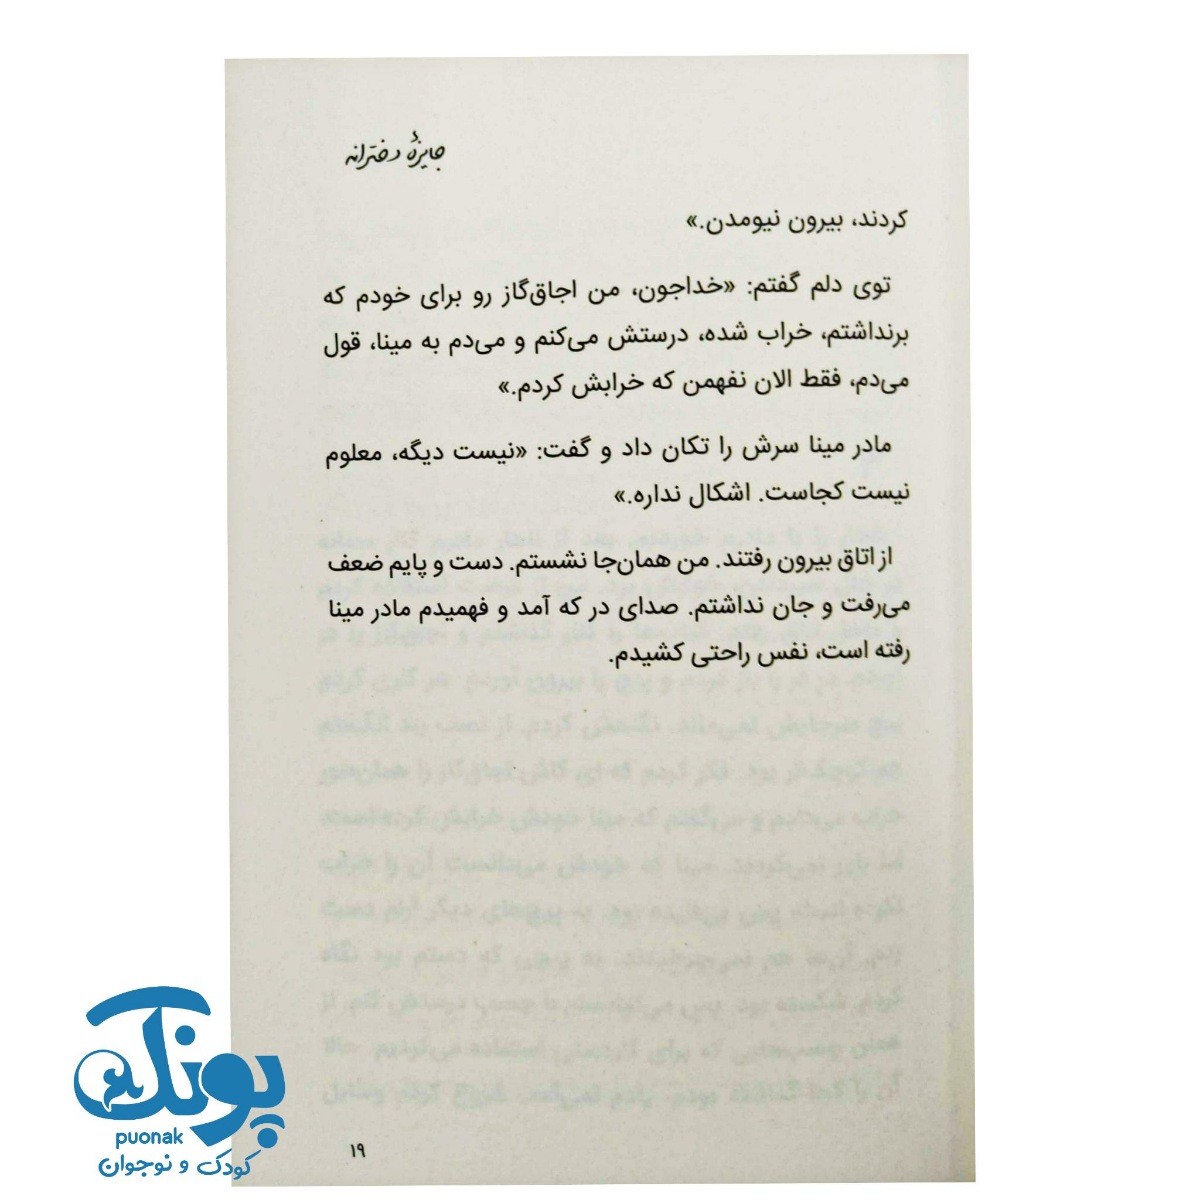 جایزهٔ دخترانه
کردند، بیرون نیومدن.»
توی دلم گفتم: «خداجون، من اجاق‌گاز رو برای خودم که
برنداشتم، خراب شده، درستش می‌کنم و می‌دم به مینا، قول
می‌دم، فقط الان نفهمن که خرابش کردم.»
مادر مینا سرش را تکان داد و گفت: «نیست دیگه، معلوم
نیست کجاست. اشکال نداره.»
از اتاق بیرون رفتند. من همان‌جا نشستم. دست و پایم ضعف
می‌رفت و جان نداشتم. صدای در که آمد و فهمیدم مادر مینا
رفته است، نفس راحتی کشیدم.
۱۹
پونک
puonak
کودک و نوجوان